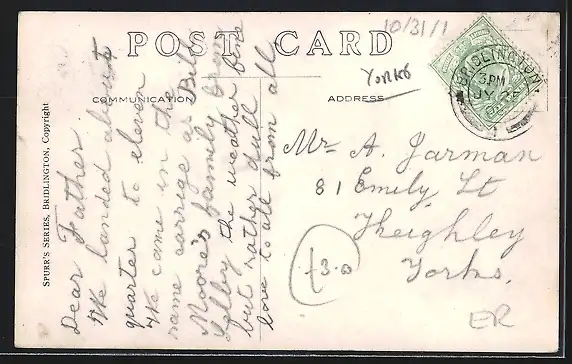 10/31/1
POST CARD
Yorks
COMMUNICATION
ADDRESS
BRIDLINGTON
3 PM
JY
SPURR'S SERIES, BRIDLINGTON, Copyright
Dear Father
We landed about
quarter to eleven
We came in the
same carrige as Bill
Moore's family from
Selby the weather fine
but rather dull
love to all from all
Mr A. Jarman
81 Emily St
Kheighley
Yorks.
£3.0
ER